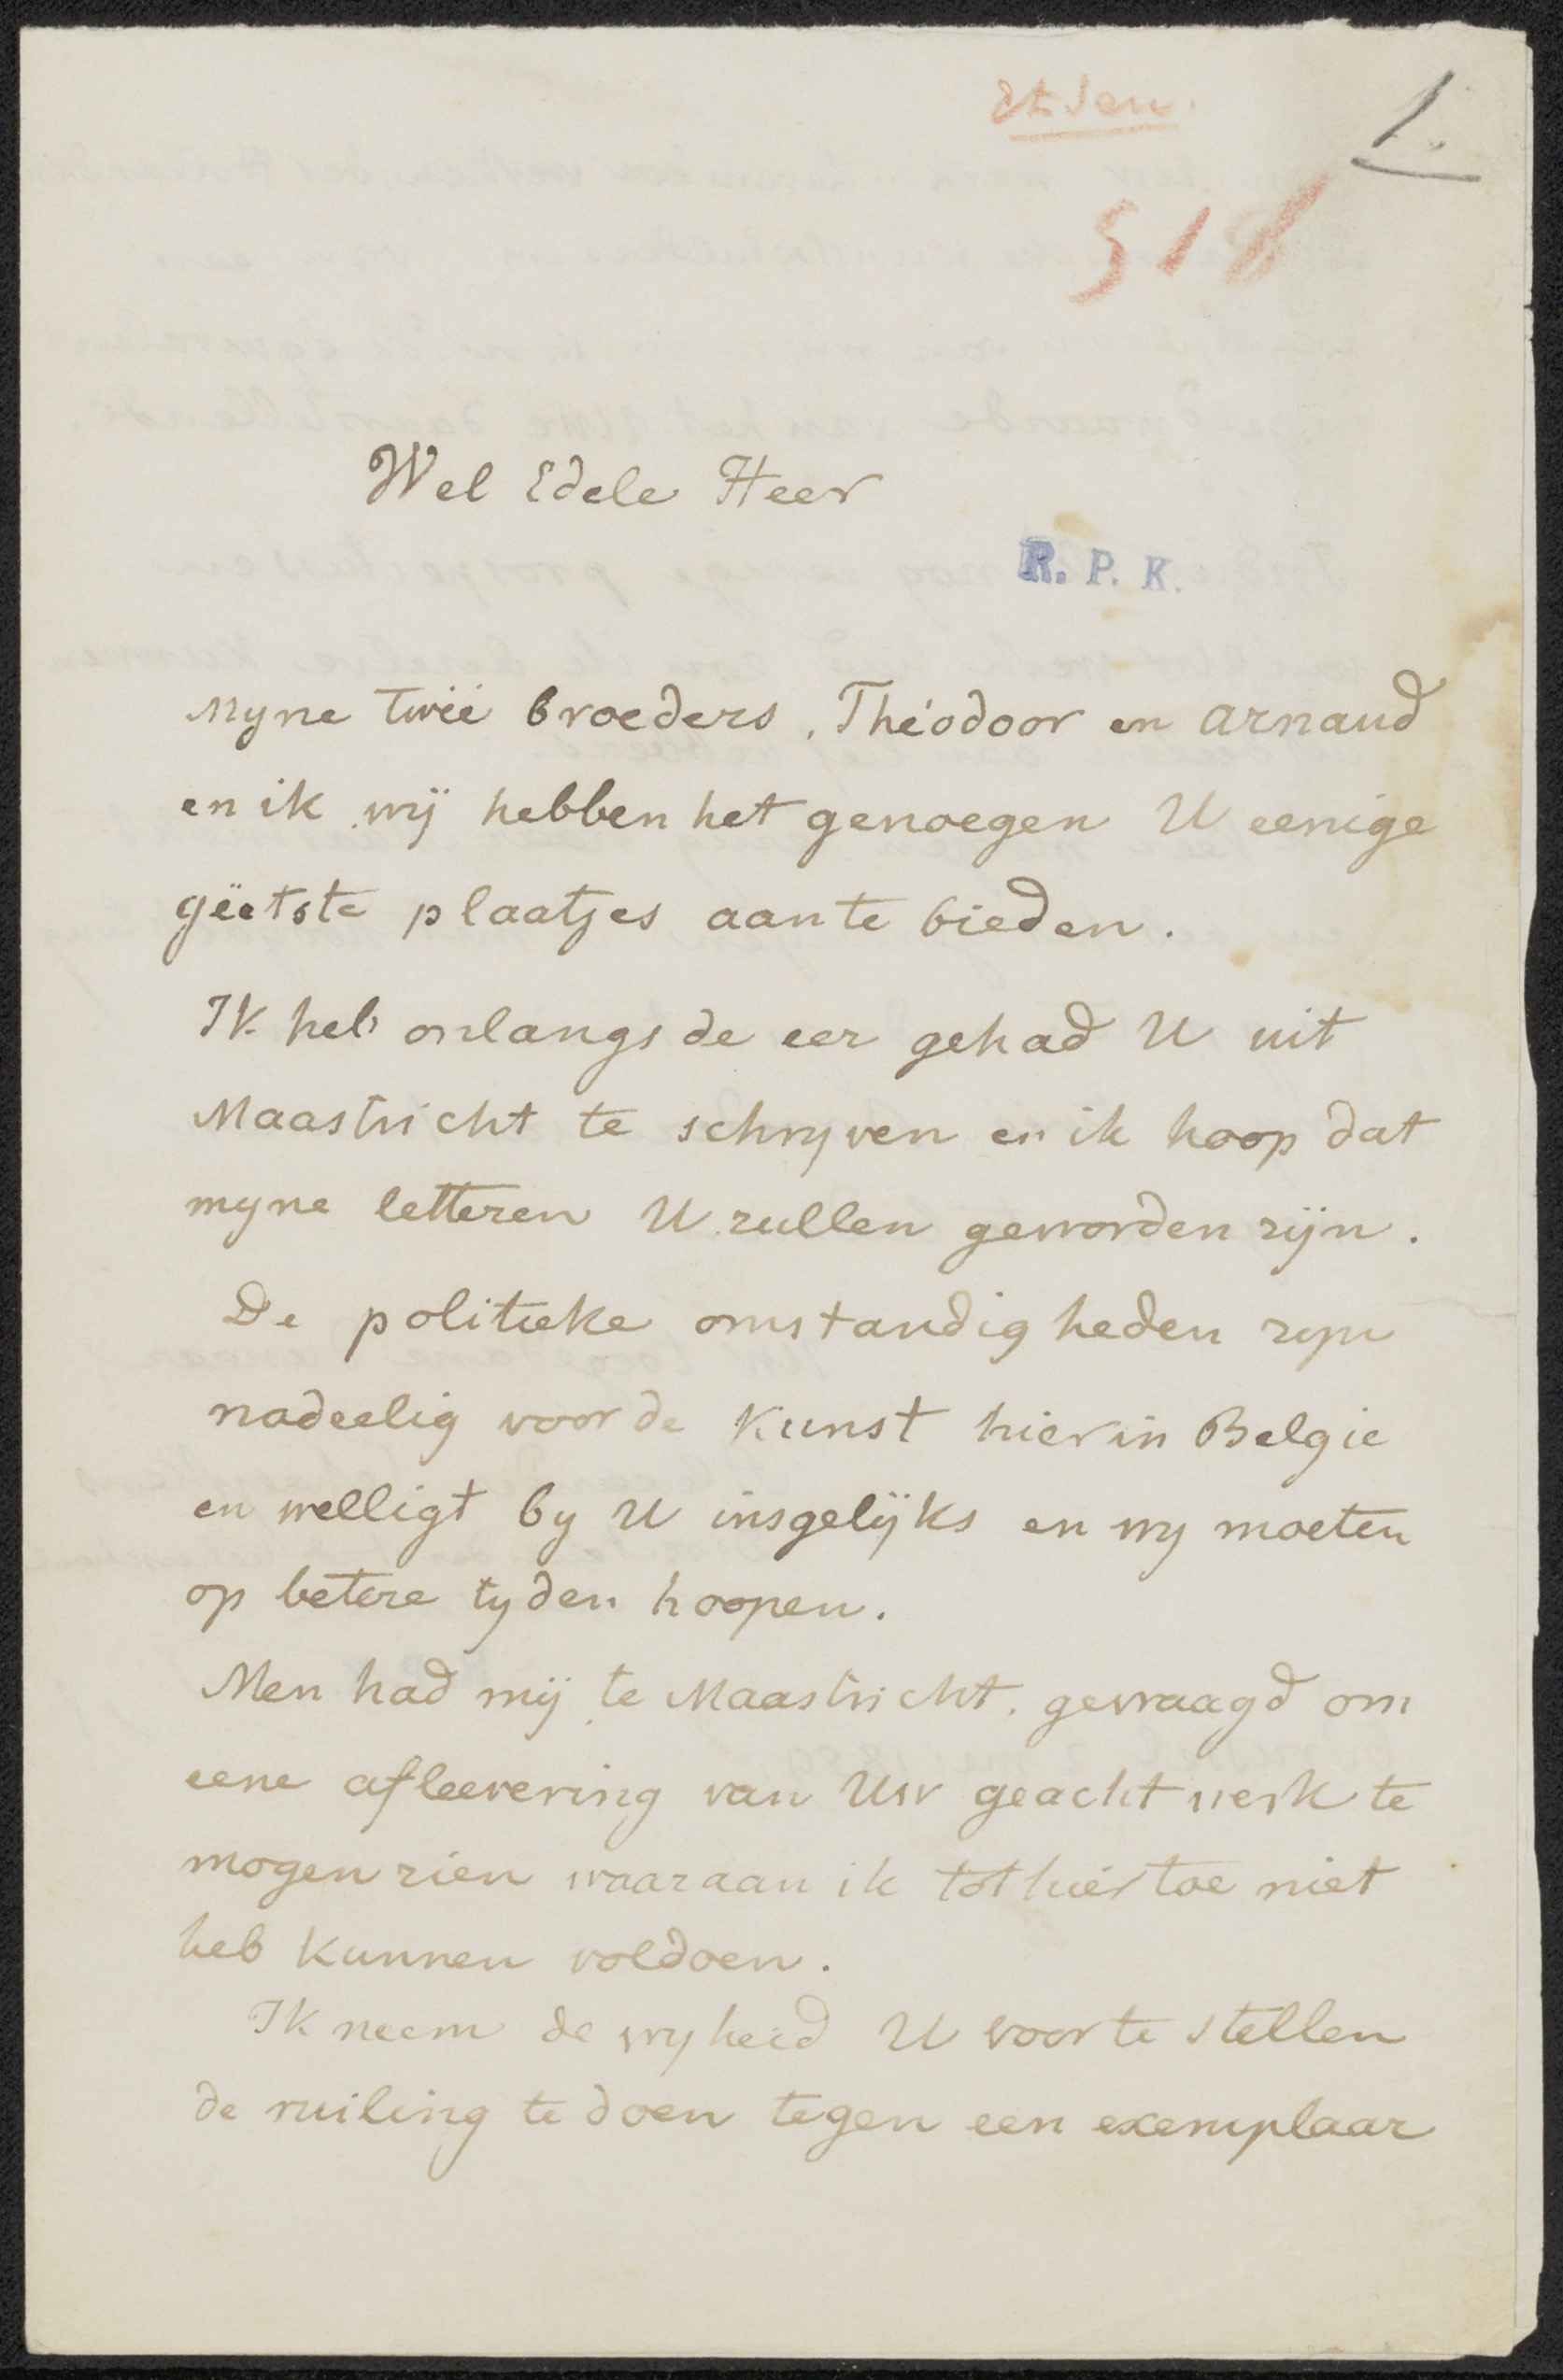 1.
518
Wel Edele Heer
R. P. K.
Myne twée broeders, Théodoor en Arnaud
en ik wij hebben het genoegen U eenige
gëetste plaatjes aan te bieden.
Ik heb onlangs de eer gehad U uit
Maastricht te schryven en ik hoop dat
myne letteren U zullen geworden zijn.
De politieke omstandigheden zyn
nadeelig voor de Kunst hier in Belgie
en welligt by U insgelijks en wy moeten
op betere tyden hoopen.
Men had mij te Maastricht gevraagd om
eene afleevering van Uw geacht werk te
mogen zien waaraan ik tot hiertoe niet
heb kunnen voldoen.
Ik neem de vryheid U voor te stellen
de ruiling te doen tegen een exemplaar